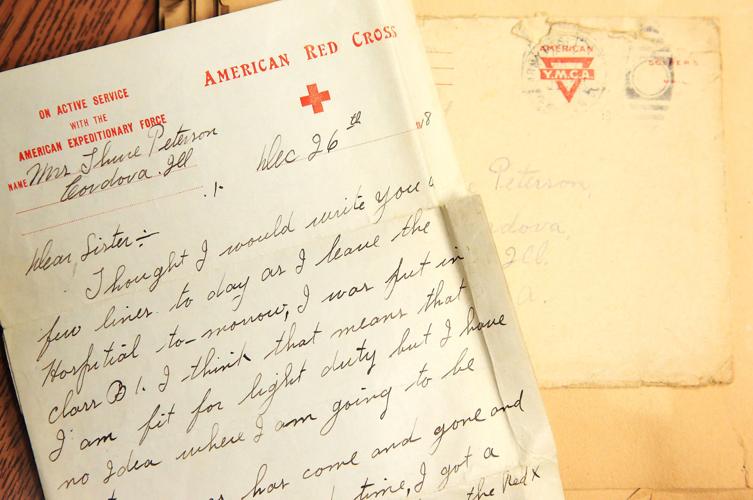 AMERICAN RED CROSS
ON ACTIVE SERVICE
WITH THE
AMERICAN EXPEDITIONARY FORCE
NAME Mrs Thure Peterson
Cordova Ill
Dec 26th 1918
.1.
Dear Sister:-
Thought I would write you a
few lines to day as I leave the
Hospitial to-morrow, I was put in
class B 1. I think that means that
I am fit for light duty but I have
no Idea where I am going to be
has come and gone and
time, I got a
the Red X
AMERICAN
Y.M.C.A.
Peterson,
Ill.